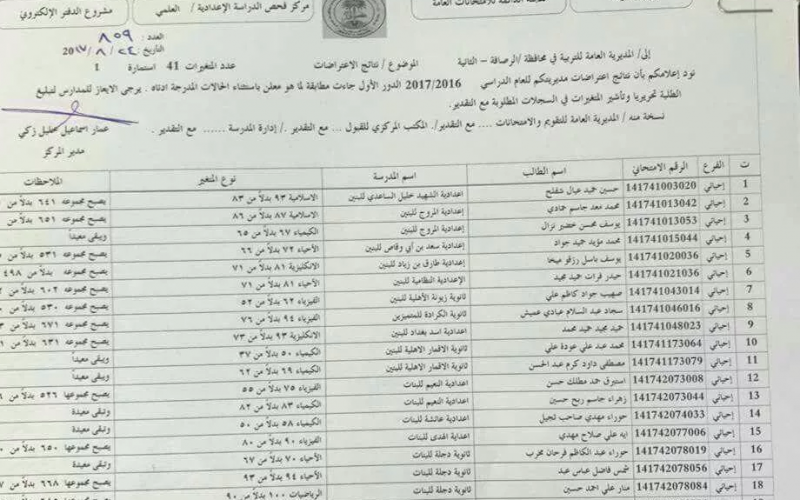 مشروع الدفتر الإلكتروني
مركز فحص الدراسة الإعدادية / العلمي
العدد: ٨٥٩
التاريخ: ٢٤ / ٨ / ٢٠١٧
إلى/ المديرية العامة للتربية في محافظة /الرصافة - الثانية
الموضوع / نتائج الاعتراضات عدد المتغيرات 41 استمارة 1
نود إعلامكم بأن نتائج اعتراضات مديريتكم للعام الدراسي 2017/2016 الدور الأول جاءت مطابقة لما هو معلن باستثناء الحالات المدرجة ادناه . يرجى الايعاز للمدارس لتبليغ
الطلبة تحريريا وتأشير المتغيرات في السجلات المطلوبة مع التقدير.
نسخة منه / المديرية العامة للتقويم والامتحانات .... مع التقدير/. المكتب المركزي للقبول .. مع التقدير ./ إدارة المدرسة ...... مع التقدير .
عمار اسماعيل خليل زكي
مدير المركز
ت الفرع الرقم الامتحاني اسم الطالب اسم المدرسة نوع المتغير الملاحظات
1 إحيائي 141741003020 حسين حميد عيال شفلح اعدادية الشهيد خليل الساعدي للبنين الاسلامية ٩٣ بدلاً من ٨٣ يصبح مجموعه ٦٤١ بدلاً من
2 إحيائي 141741013042 محمد معد جاسم حمادي إعدادية المروج للبنين الاسلامية ٨٧ بدلاً من ٨٦ يصبح مجموعه ٦٥١ بدلاً من
3 إحيائي 141741013053 يوسف محسن خضير نزال إعدادية المروج للبنين الكيمياء ٦٧ بدلاً من ٦٥ ويبقى معيداً
4 إحيائي 141741015044 محمد مؤيد حميد جواد إعدادية سعد بن أبي وقاص للبنين الأحياء ٧٢ بدلاً من ٦٦ يصبح مجموعه ٥٣١ بدلاً من
5 إحيائي 141741020036 يوسف باسل رزقو ميخا إعدادية طارق بن زياد للبنين الانكليزية ٨١ بدلاً من ٧١ يصبح مجموعه بدلاً من ٤٩٨
6 إحيائي 141741021036 حيدر فرات حميد مجيد الإعدادية النظامية للبنين الأحياء ٨١ بدلاً من ٧١ يصبح مجموعه ٦٠٢ بدلاً من
7 إحيائي 141741043014 صهيب جواد كاظم علي ثانوية زيونة الأهلية للبنين الفيزياء ٦٢ بدلاً من ٥٢ يصبح مجموعه ٥٣٠ بدلاً من
8 إحيائي 141741046016 سجاد عبد السلام عبادي عميش ثانوية الكرادة للمتميزين الفيزياء ٩٤ بدلاً من ٧٦ يصبح مجموعه ٦٧١ بدلاً من
9 إحيائي 141741048023 حميد مجيد حميد محمد اعدادية اسد بغداد للبنين الانكليزية ٩٣ بدلاً من ٧٣ يصبح مجموعه ٦٣١ بدلاً من
10 إحيائي 141741173064 محمد عبد علي عودة علي ثانوية الاقمار الاهلية للبنين الكيمياء ٥٠ بدلاً من ٣٧ ويبقى معيداً
11 إحيائي 141741173079 مصطفى داود كرم عبد الحسن ثانوية الاقمار الاهلية للبنين الكيمياء ٦٩ بدلاً من ٦٢ ويبقى معيداً
12 إحيائي 141742073008 استبرق حمد مطلك حسن اعدادية النعيم للبنات الفيزياء ٧٥ بدلاً من ٥٥ يصبح مجموعها ٥٢٦ بدلاً من
13 إحيائي 141742073044 زهراء جاسم ربح حسين اعدادية النعيم للبنات الكيمياء ٨٣ بدلاً من ٨٢ وتبقى معيدة
14 إحيائي 141742074033 حوراء مهدي صاحب ثجيل اعدادية عائشة للبنات الكيمياء ٥٨ بدلاً من ٥٠ وتبقى معيدة
15 إحيائي 141742077006 ايه علي صلاح مهدي اعداية الهدى للبنات الفيزياء ٩٠ بدلاً من ٨٠ يصبح مجموعها ٦٥٠ بدلاً من
16 إحيائي 141742078019 حوراء عبد الكاظم فرحان مخرب ثانوية دجلة للبنات الأحياء ٧٠ بدلاً من ٦٧ وتبقى معيدة
17 إحيائي 141742078056 شمس فاضل عباس عبد ثانوية دجلة للبنات الأحياء ٩٤ بدلاً من ٩٣ يصبح مجموعها ٦٦٨ بدلاً من
18 إحيائي 141742078084 منار علي احمد حسين ثانوية دجلة للبنات الرياضيات ١٠٠ بدلاً من ٩٠